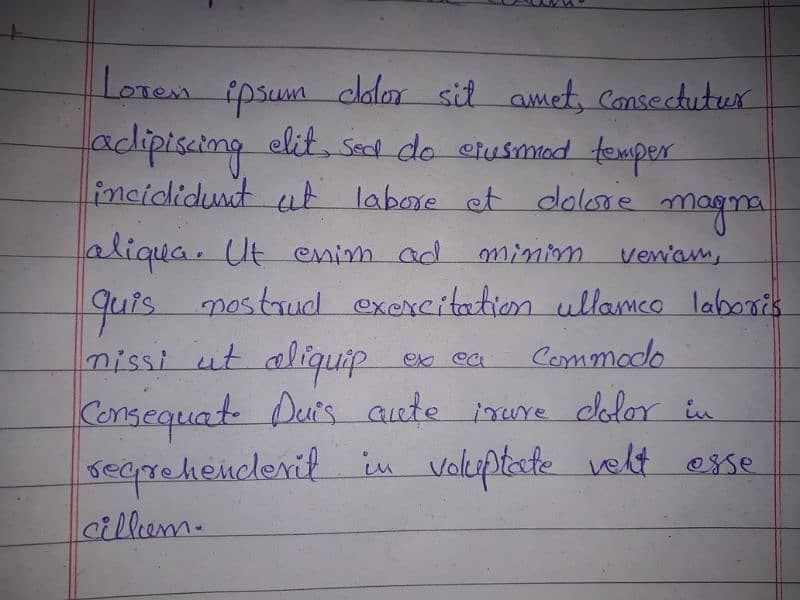 Lorem ipsum dolor sit amet, Consectutur
adipiscing elit, sed do eiusmod temper
incididunt ut labore et dolore magna
aliqua. Ut enim ad minim veniam,
quis nostrud exercitation ullamco laboris
nissi ut aliquip ex ea Commodo
Consequat. Duis aute irure dolor in
reqrehenderit in voluptate velt esse
cillum.